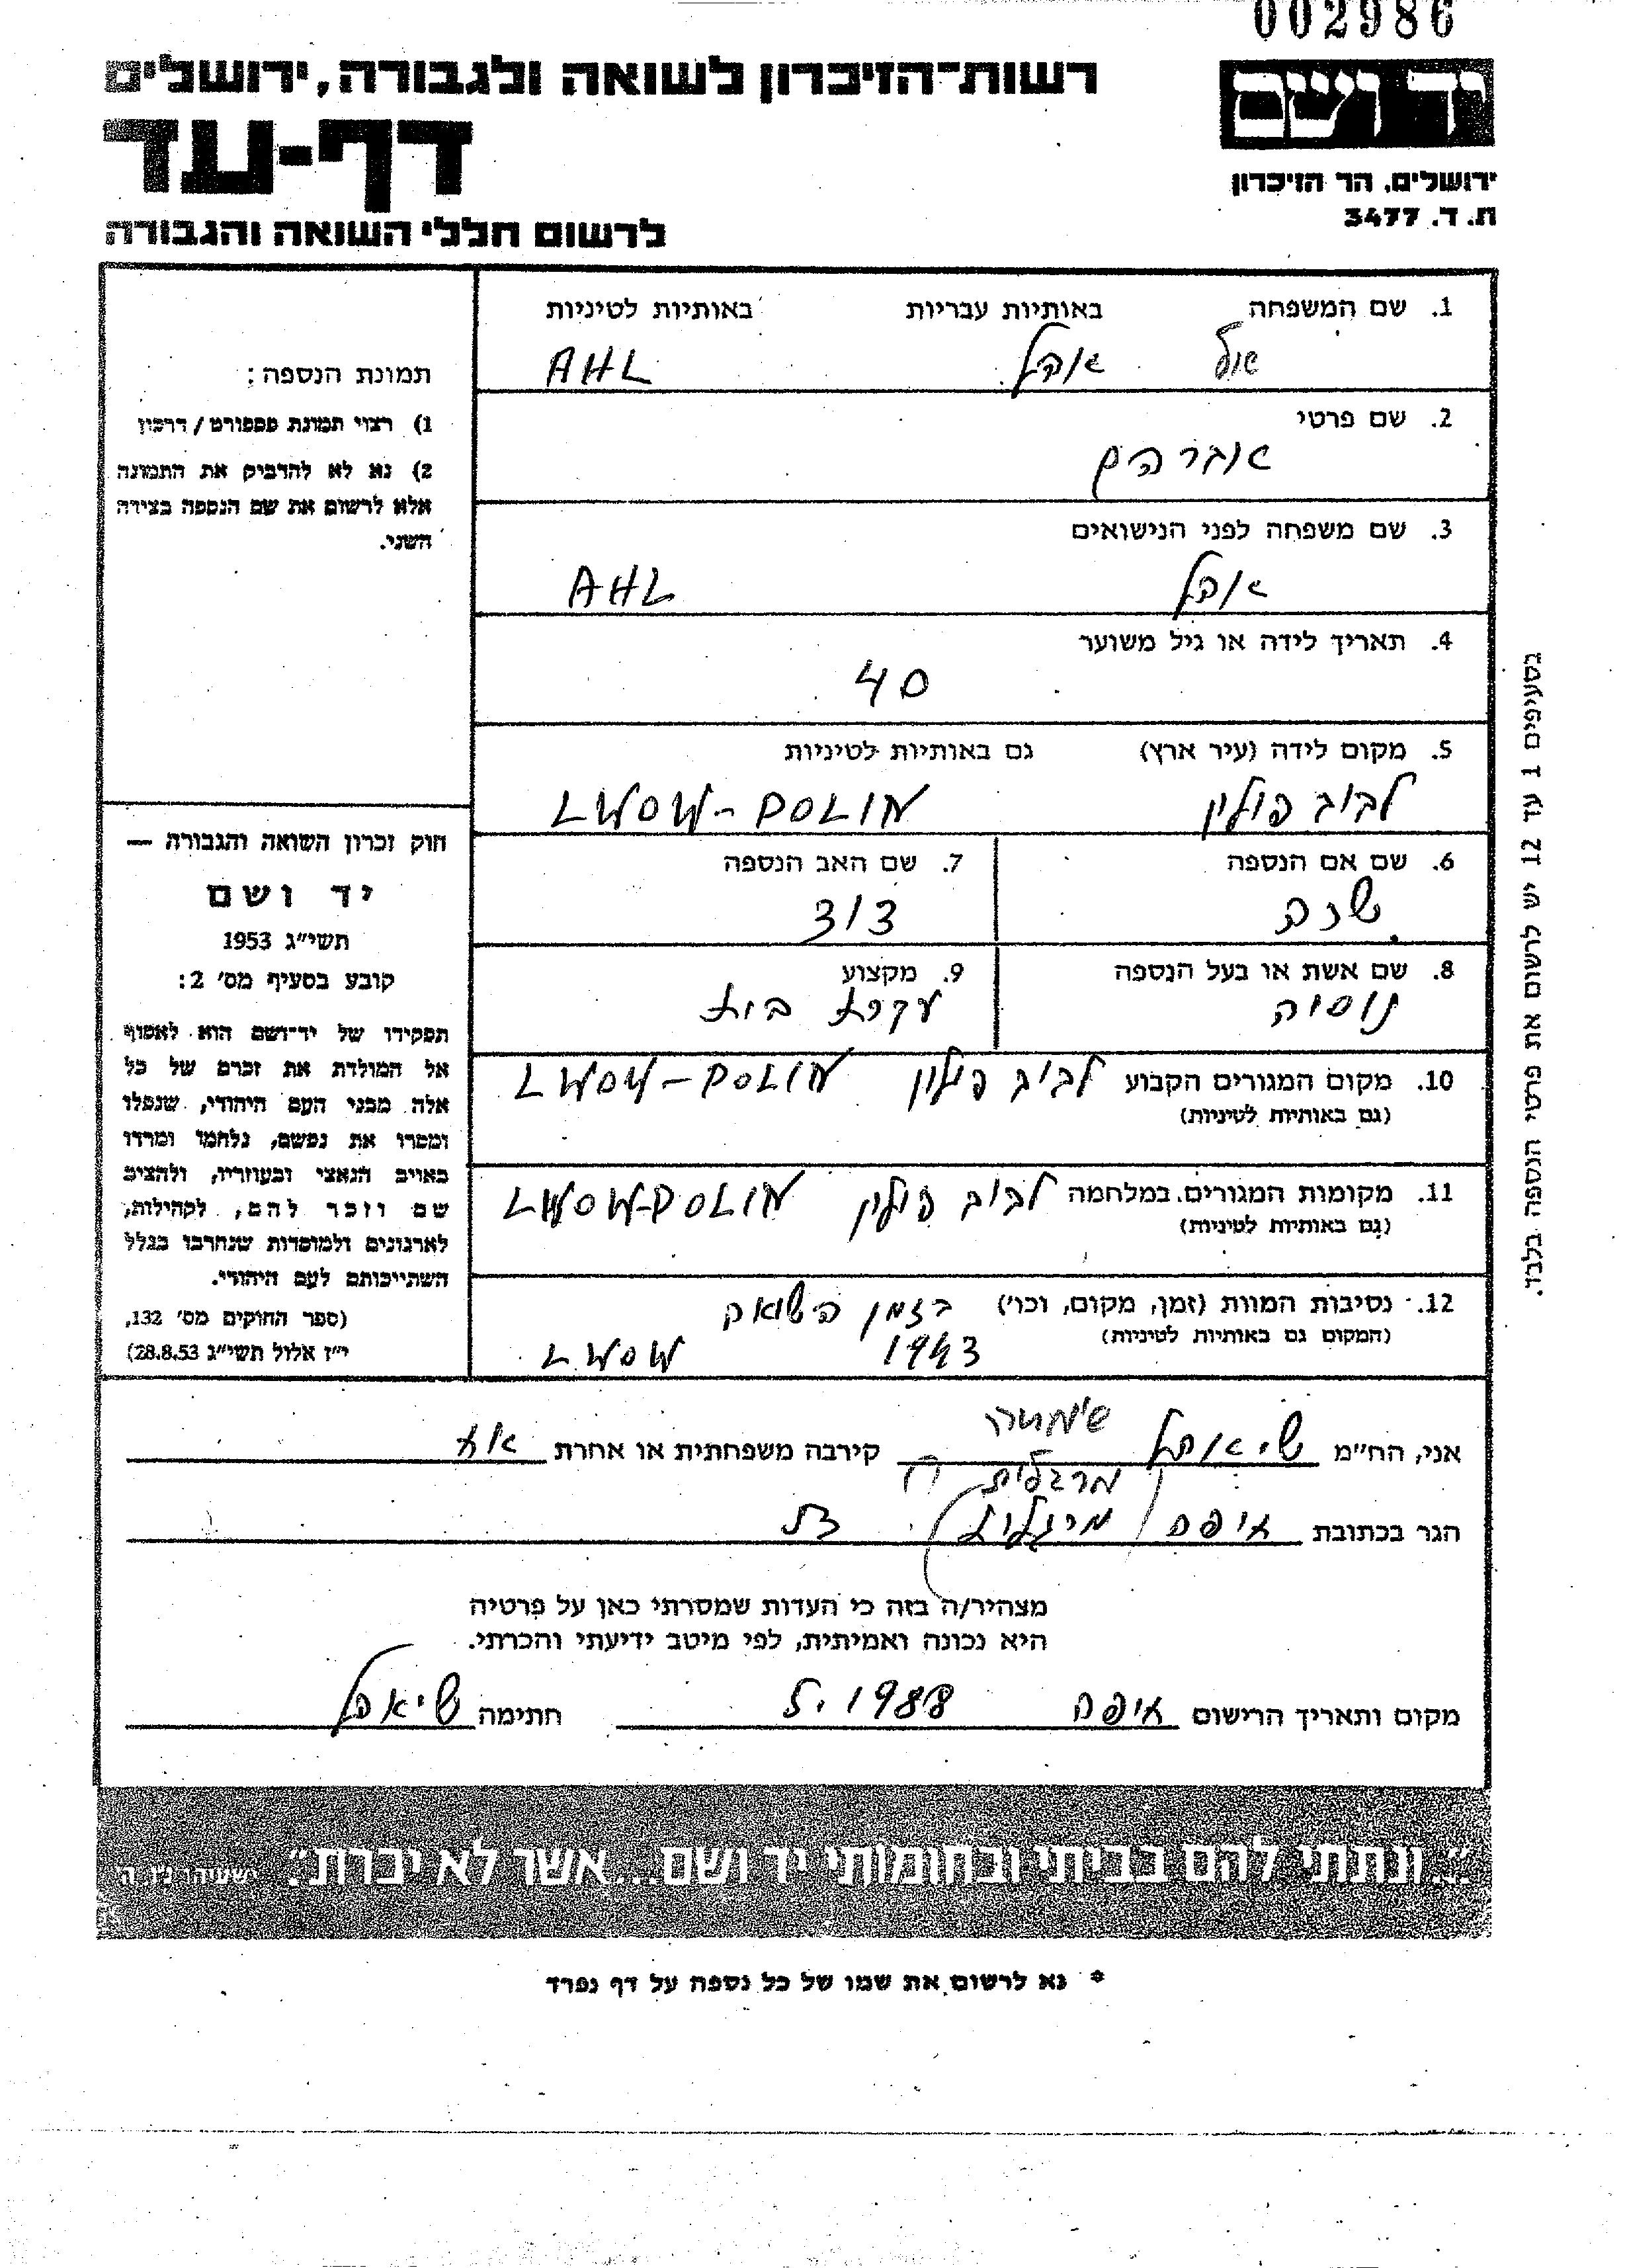 002986
יד ושם
ירושלים, הר הזיכרון
ת. ד. 3477
רשות־הזיכרון לשואה ולגבורה, ירושלים
דף-עד
לרשום חללי השואה והגבורה
תמונת הנספה:
1) רצוי תמונת פספורט / דרכון
2) נא לא להדביק את התמונה
אלא לרשום את שם הנספה בצידה
השני.
חוק זכרון השואה והגבורה —
יד ושם
תשי״ג 1953
קובע בסעיף מס׳ 2:
תפקידו של יד־ושם הוא לאסוף
אל המולדת את זכרם של כל
אלה מבני העם היהודי, שנפלו
ומסרו את נפשם, נלחמו ומרדו
באויב הנאצי ובעוזריו, ולהציב
שם וזכר להם, לקהילות,
לארגונים ולמוסדות שנחרבו בגלל
השתייכותם לעם היהודי.
(ספר החוקים מס׳ 132,
י״ז אלול תשי״ג 28.8.53)
1. שם המשפחה באותיות עבריות באותיות לטיניות
אהל AHL
2. שם פרטי
אברהם
3. שם משפחה לפני הנישואים
אהל AHL
4. תאריך לידה או גיל משוער
40
5. מקום לידה (עיר ארץ) גם באותיות לטיניות
לבוב פולין LWOW-POLIN
6. שם אם הנספה 7. שם האב הנספה
8. שם אשת או בעל הנספה 9. מקצוע
נוסיה עקרת בית
10. מקום המגורים הקבוע לבוב פולין LWOW-POLIN
(גם באותיות לטיניות)
11. מקומות המגורים במלחמה לבוב פולין LWOW-POLIN
(גם באותיות לטיניות)
12. נסיבות המוות (זמן, מקום, וכו׳) בזמן השואה
(המקום גם באותיות לטיניות) 1943 LWOW
בסעיפים 1 עד 12 יש לרשום את פרטי הנספה בלבד.
אני, הח״מ שי אהל קירבה משפחתית או אחרת אח
מרגלית
הגר בכתובת חיפה מרגלית
מצהיר/ה בזה כי העדות שמסרתי כאן על פרטיה
היא נכונה ואמיתית, לפי מיטב ידיעתי והכרתי.
מקום ותאריך הרישום חיפה 5.1988 חתימה שי אהל
״...ונתתי להם בביתי ובחומותי יד ושם...אשר לא יכרת״. ישעיהו נ״ו, ה׳
* נא לרשום את שמו של כל נספה על דף נפרד